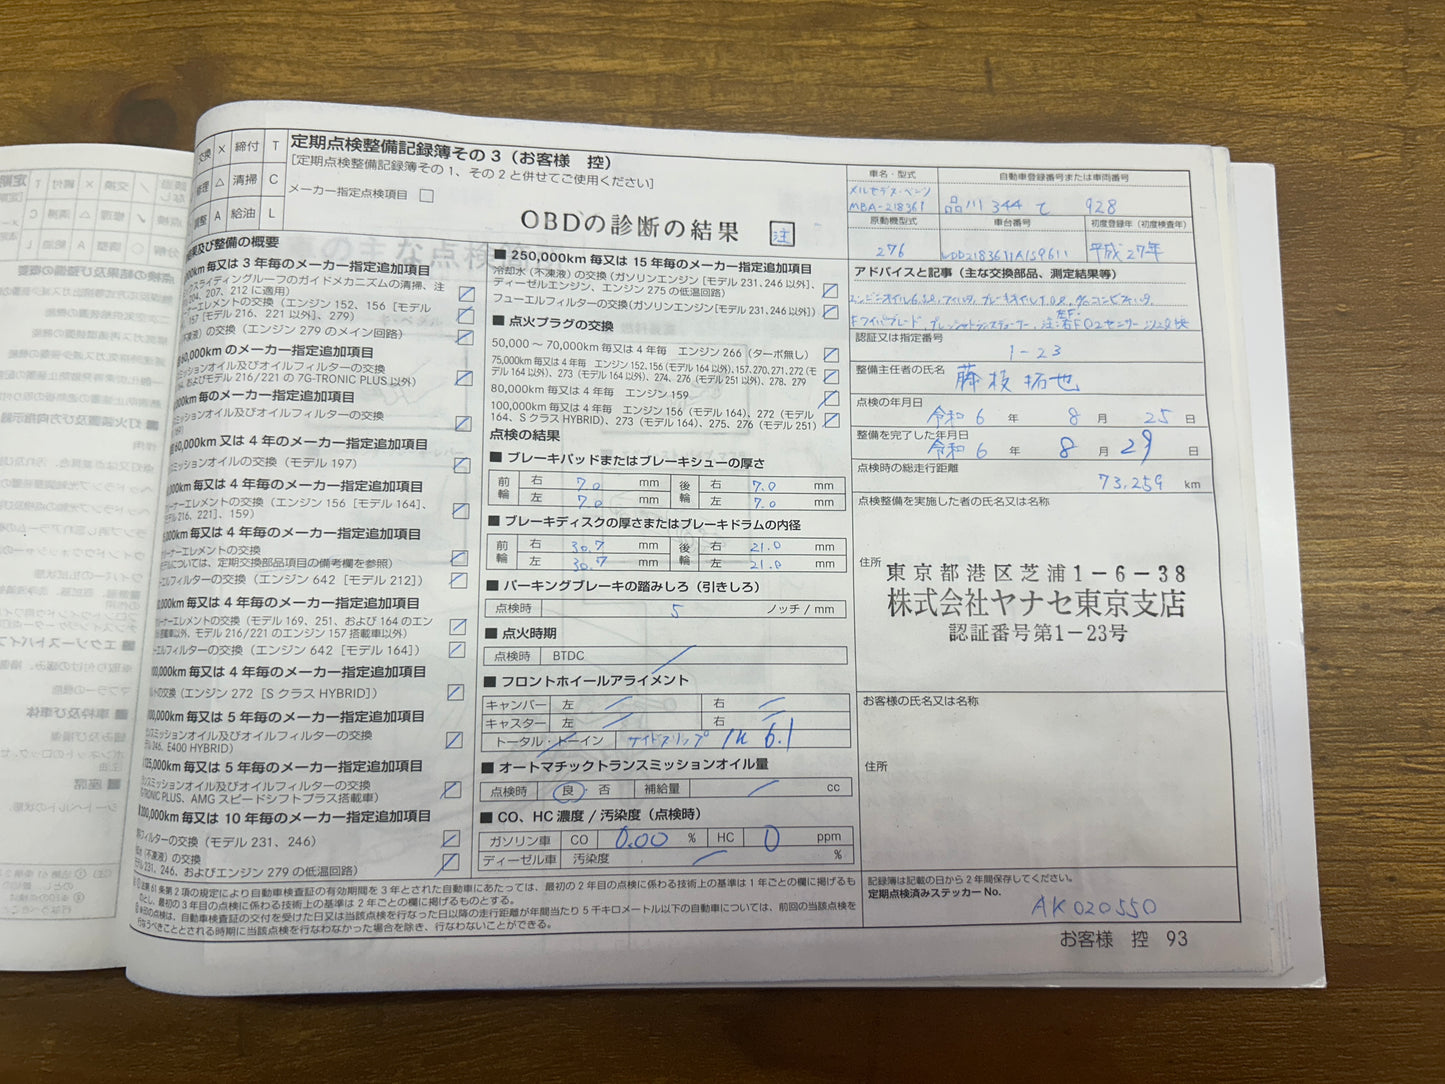 交換 × 締付 T
修理 △ 清掃 C
調整 A 給油 L
定期点検整備記録簿その3（お客様 控）
[定期点検整備記録簿その1、その2と併せてご使用ください]
メーカー指定点検項目
OBDの診断の結果 注
検及び整備の概要
km毎又は3年毎のメーカー指定追加項目
スライディングルーフのガイドメカニズムの清掃、注
204、207、212に適用)
エレメントの交換（エンジン152、156［モデル
157［モデル216、221以外］、279）
不凍液）の交換（エンジン279のメイン回路）
60,000kmのメーカー指定追加項目
ミッションオイル及びオイルフィルターの交換
およびモデル216/221の7G-TRONIC PLUS以外）
km毎のメーカー指定追加項目
ミッションオイル及びオイルフィルターの交換
60,000km又は4年毎のメーカー指定追加項目
ミッションオイルの交換（モデル197）
km毎又は4年毎のメーカー指定追加項目
ーナーエレメントの交換（エンジン156［モデル164］、
モデル216、221］、159）
000km毎又は4年毎のメーカー指定追加項目
ーナーエレメントの交換
については、定期交換部品項目の備考欄を参照）
エルフィルターの交換（エンジン642［モデル212］）
km毎又は4年毎のメーカー指定追加項目
ーナーエレメントの交換（モデル169、251、および164のエン
搭載車以外、モデル216/221のエンジン157搭載車以外）
ーエルフィルターの交換（エンジン642［モデル164］）
00,000km毎又は4年毎のメーカー指定追加項目
ルトの交換（エンジン272［SクラスHYBRID］）
00,000km毎又は5年毎のメーカー指定追加項目
スミッションオイル及びオイルフィルターの交換
デル246、E400 HYBRID）
125,000km毎又は5年毎のメーカー指定追加項目
ンスミッションオイル及びオイルフィルターの交換
TRONIC PLUS、AMGスピードシフトプラス搭載車）
200,000km毎又は10年毎のメーカー指定追加項目
フィルターの交換（モデル231、246）
（不凍液）の交換
231、246、およびエンジン279の低温回路）
■ 250,000km毎又は15年毎のメーカー指定追加項目
冷却水（不凍液）の交換（ガソリンエンジン［モデル231、246以外］、
ディーゼルエンジン、エンジン275の低温回路）
フューエルフィルターの交換（ガソリンエンジン［モデル231、246以外］）
■ 点火プラグの交換
50,000～70,000km毎又は4年毎 エンジン266（ターボ無し）
75,000km毎又は4年毎 エンジン152、156（モデル164以外)、157、270、271、272（モ
デル164以外）、273（モデル164以外）、274、276（モデル251以外）、278、279
80,000km毎又は4年毎 エンジン159
100,000km毎又は4年毎 エンジン156（モデル164）、272（モデル
164、SクラスHYBRID）、273（モデル164）、275、276（モデル251）
点検の結果
■ ブレーキパッドまたはブレーキシューの厚さ
前輪 右 7.0 mm 後輪 右 7.0 mm
左 7.0 mm 左 7.0 mm
■ ブレーキディスクの厚さまたはブレーキドラムの内径
前輪 右 30.7 mm 後輪 右 21.0 mm
左 30.7 mm 左 21.0 mm
■ パーキングブレーキの踏みしろ（引きしろ）
点検時 5 ノッチ / mm
■ 点火時期
点検時 BTDC
■ フロントホイールアライメント
キャンバー 左 右
キャスター 左 右
トータル・トーイン サイドスリップ IN 6.1
■ オートマチックトランスミッションオイル量
点検時 良・否 補給量 cc
■ CO、HC濃度 / 汚染度（点検時）
ガソリン車 CO 0.00 % HC 0 ppm
ディーゼル車 汚染度 %
車名・型式 自動車登録番号または車両番号
メルセデス・ベンツ
MBA-218361 品川 344 て 928
原動機型式 車台番号 初度登録年（初度検査年）
276 WDD2183611A159611 平成27年
アドバイスと記事（主な交換部品、測定結果等）
認証又は指定番号
1-23
整備主任者の氏名
藤枝拓也
点検の年月日
令和6 年 8 月 25 日
整備を完了した年月日
令和6 年 8 月 29 日
点検時の総走行距離
73,259 km
点検整備を実施した者の氏名又は名称
住所 東京都港区芝浦1-6-38
株式会社ヤナセ東京支店
認証番号第1-23号
お客様の氏名又は名称
住所
法第61条第2項の規定により自動車検査証の有効期間を3年とされた自動車にあたっては、最初の2年目の点検に係わる技術上の基準は1年ごとの欄に掲げるも
のとし、最初の3年目の点検に係わる技術上の基準は2年ごとの欄に掲げるものとする。
の点検は、自動車検査証の交付を受けた日又は当該点検を行なった日以降の走行距離が年間当たり5千キロメートル以下の自動車については、前回の当該点検を
行なうべきこととされる時期に当該点検を行なわなかった場合を除き、行なわないことができる。
記録簿は記載の日から2年間保存してください。
定期点検済みステッカーNo.
AK020550
お客様 控 93